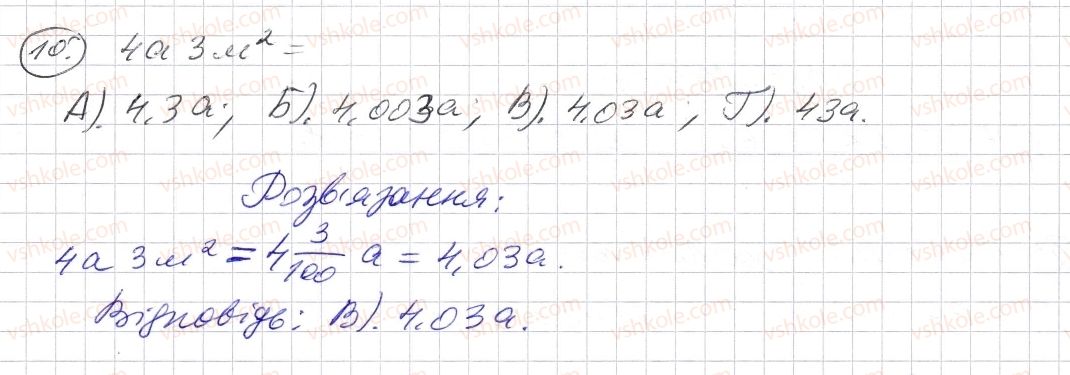 10. 4а 3м² =
А). 4,3а; Б). 4,003а; В). 4,03а; Г). 43а.
Розв'язання:
4а 3м² = 4 3/100 а = 4,03а.
Відповідь: В). 4,03а.